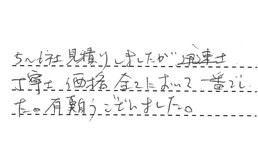 5〜6社見積りしましたが迅速さ
丁寧さ 価格 全てにおいて一番でし
た。有難うございました。